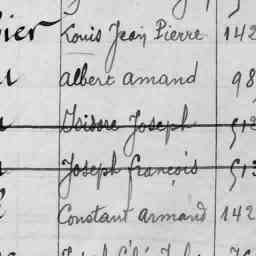 ier Louis Jean Pierre 142
albert amand 98
Isidore Joseph 513
Joseph françois 513
Constant armand 142